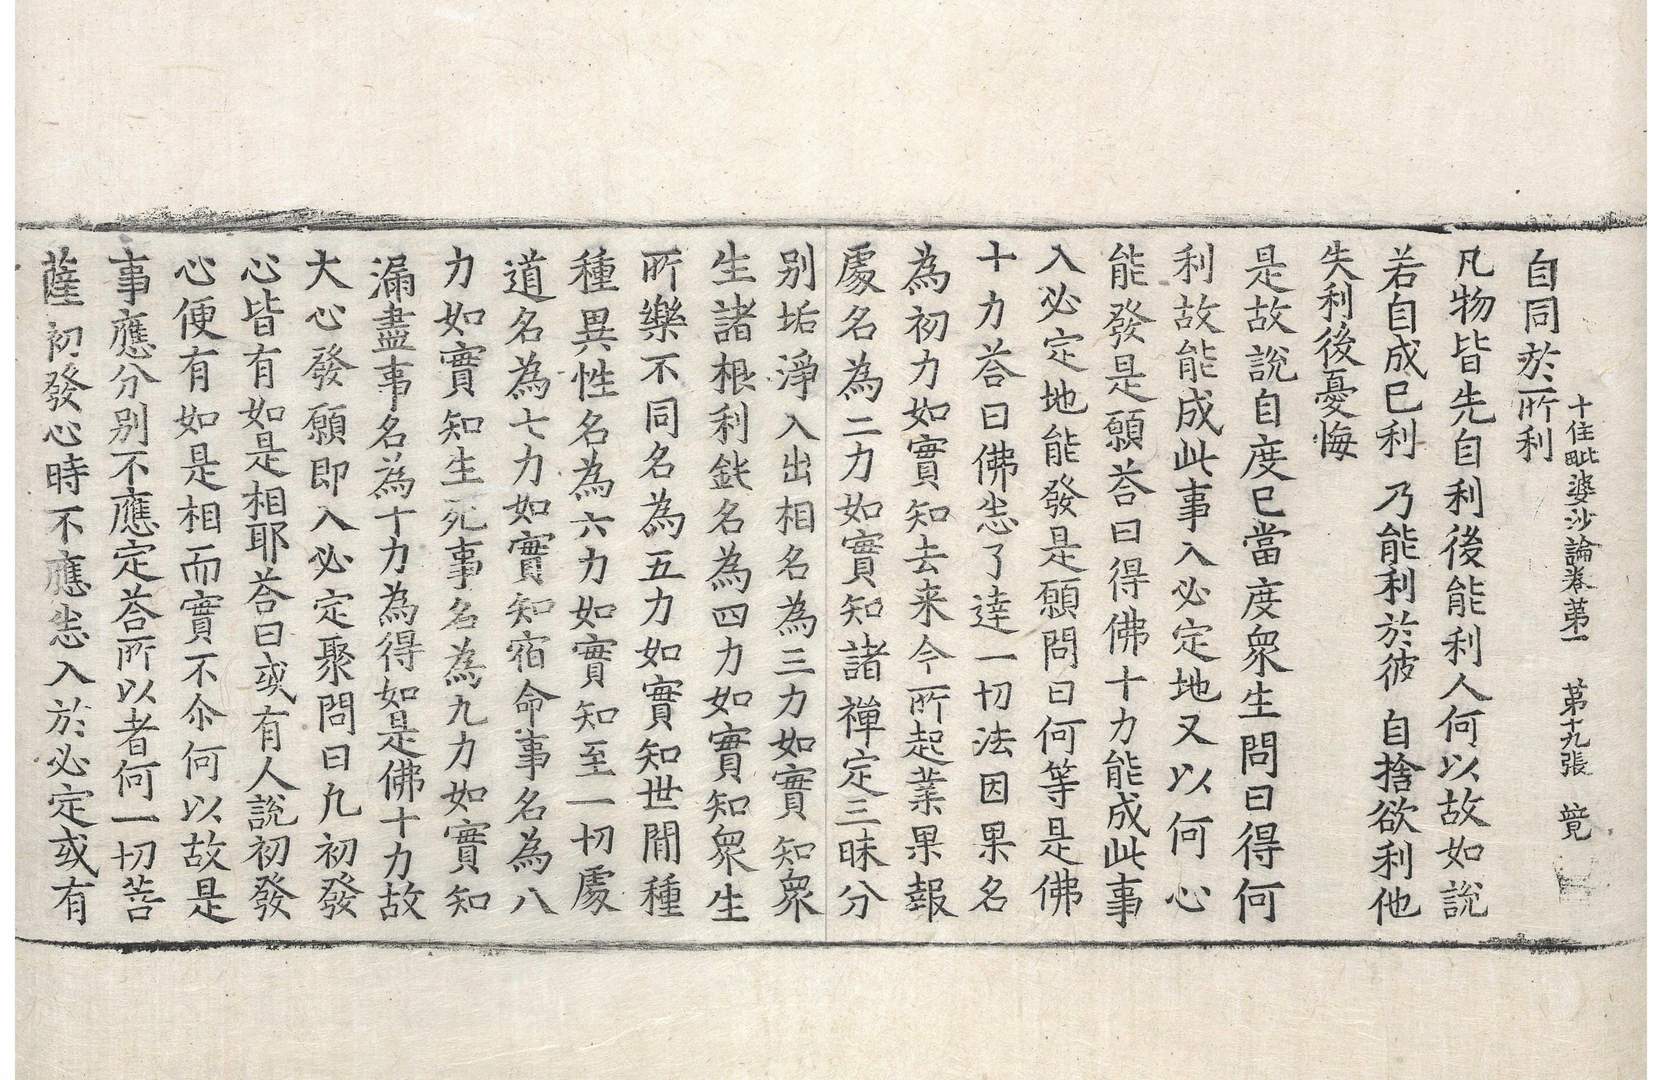 十住毗婆沙論卷第一　第十九張　覚
自同於所利
凡物皆先自利後能利人何以故如說
若自成已利　乃能利於彼　自捨欲利他
失利後憂悔
是故說自度已當度衆生問曰得何
利故能成此事入必定地又以何心
能發是願荅曰得佛十力能成此事
入必定地能發是願問曰何等是佛
十力荅曰佛悉了達一切法因果名
為初力如實知去来今所起業果報
處名為二力如實知諸禪定三昧分
别垢淨入出相名為三力如實知衆
生諸根利鈍名為四力如實知衆生
所樂不同名為五力如實知世間種
種異性名為六力如實知至一切處
道名為七力如實知宿命事名為八
力如實知生死事名為九力如實知
漏盡事名為十力為得如是佛十力故
大心發願即入必定聚問曰凡初發
心皆有如是相耶荅曰或有人說初發
心便有如是相而實不尒何以故是
事應分别不應定荅所以者何一切菩
薩初發心時不應悉入於必定或有